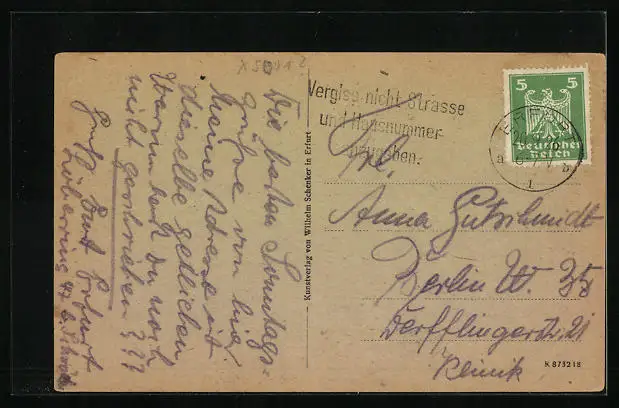 X50812
Die besten Sonntags-
grüße von hier
meine Adresse ist
dieselbe geblieben
Warum hast Du noch
nicht geschrieben ???
Gruß Curt Erfurt
Kunstverlag von Wilhelm Schenker in Erfurt
Vergiss nicht Strasse
und Hausnummer
anzugeben.
ERFURT
5 5
Deutsches
Reich
a b
1
Frl.
Anna Gutschmidt
Berlin W. 35
Derfflingerstr. 21
Klinik
K 873218